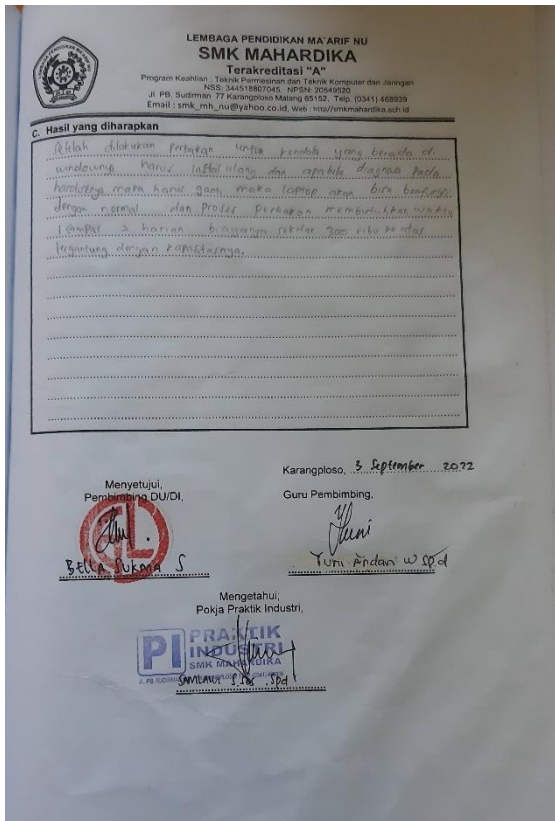 LEMBAGA PENDIDIKAN MA'ARIF NU
SMK MAHARDIKA
Terakreditasi "A"
Program Keahlian : Teknik Permesinan dan Teknik Komputer dan Jaringan
NSS: 344518807045, NPSN: 20549520
Jl. PB. Sudirman 77 Karangploso Malang 65152, Telp. (0341) 468939
Email : smk_mh_nu@yahoo.co.id, Web : http//smkmahardika.sch.id
C. Hasil yang diharapkan
Setelah dilakukan perbaikan untuk kendala yang berada di
windownya harus instal ulang dan apabila diagnosa pada
hardisknya maka harus ganti maka laptop akan bisa berfungsi
dengan normal dan proses perbaikan membutuhkan waktu
1 sampai 2 harian biasanya sekitar 300 ribu ke atas
tergantung dengan kapasitasnya.
Karangploso, 3 September 2022
Menyetujui,
Pembimbing DU/DI,
Guru Pembimbing,
BELLA SUKMA S
Yuni Andari W SP.d
Mengetahui;
Pokja Praktik Industri,
PI PRAKTIK
INDUSTRI
SMK MAHARDIKA
JL. PB. SUDIRMAN
S.Sos. SPd